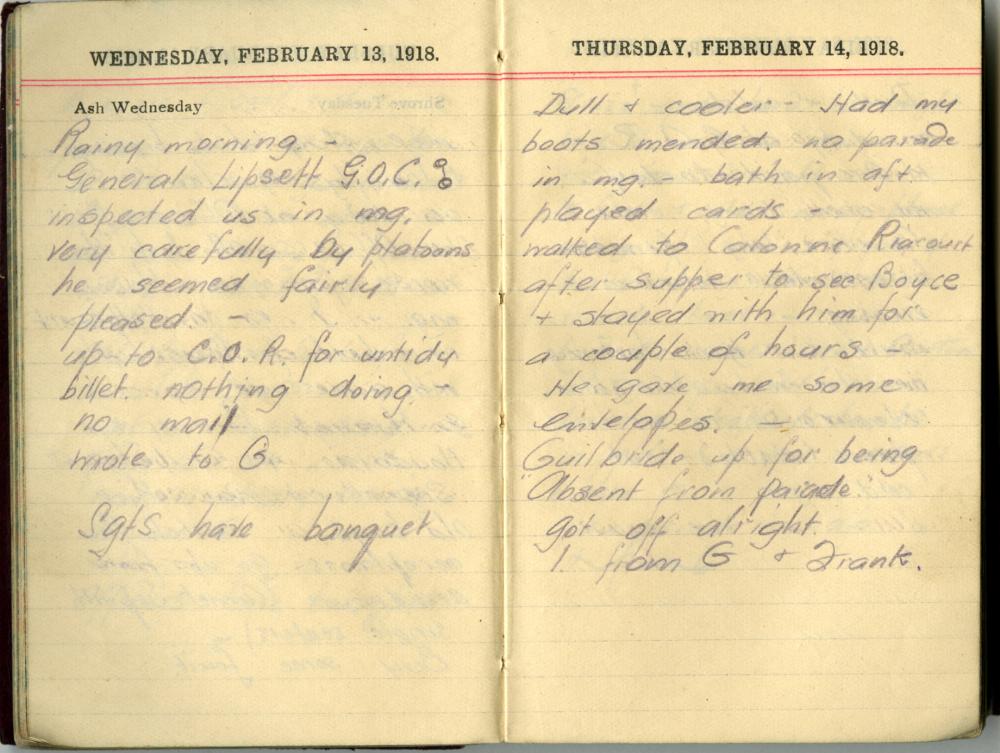 WEDNESDAY, FEBRUARY 13, 1918.
Ash Wednesday
Rainy morning -
General Lipsett G.O.C.
inspected us in mg.
very carefully by platoons
he seemed fairly
pleased -
up to C.O. R. for untidy
billet. nothing doing
no mail
wrote to G
Sgts have banquet
THURSDAY, FEBRUARY 14, 1918.
Dull + cooler - Had my
boots mended no parade
in mg. - bath in aft.
played cards -
walked to Calonne Ricouart
after supper to see Boyce
+ stayed with him for
a couple of hours -
He gave me some
envelopes. -
Guilbride up for being
Absent from parade
got off alright.
1. from G + Frank.